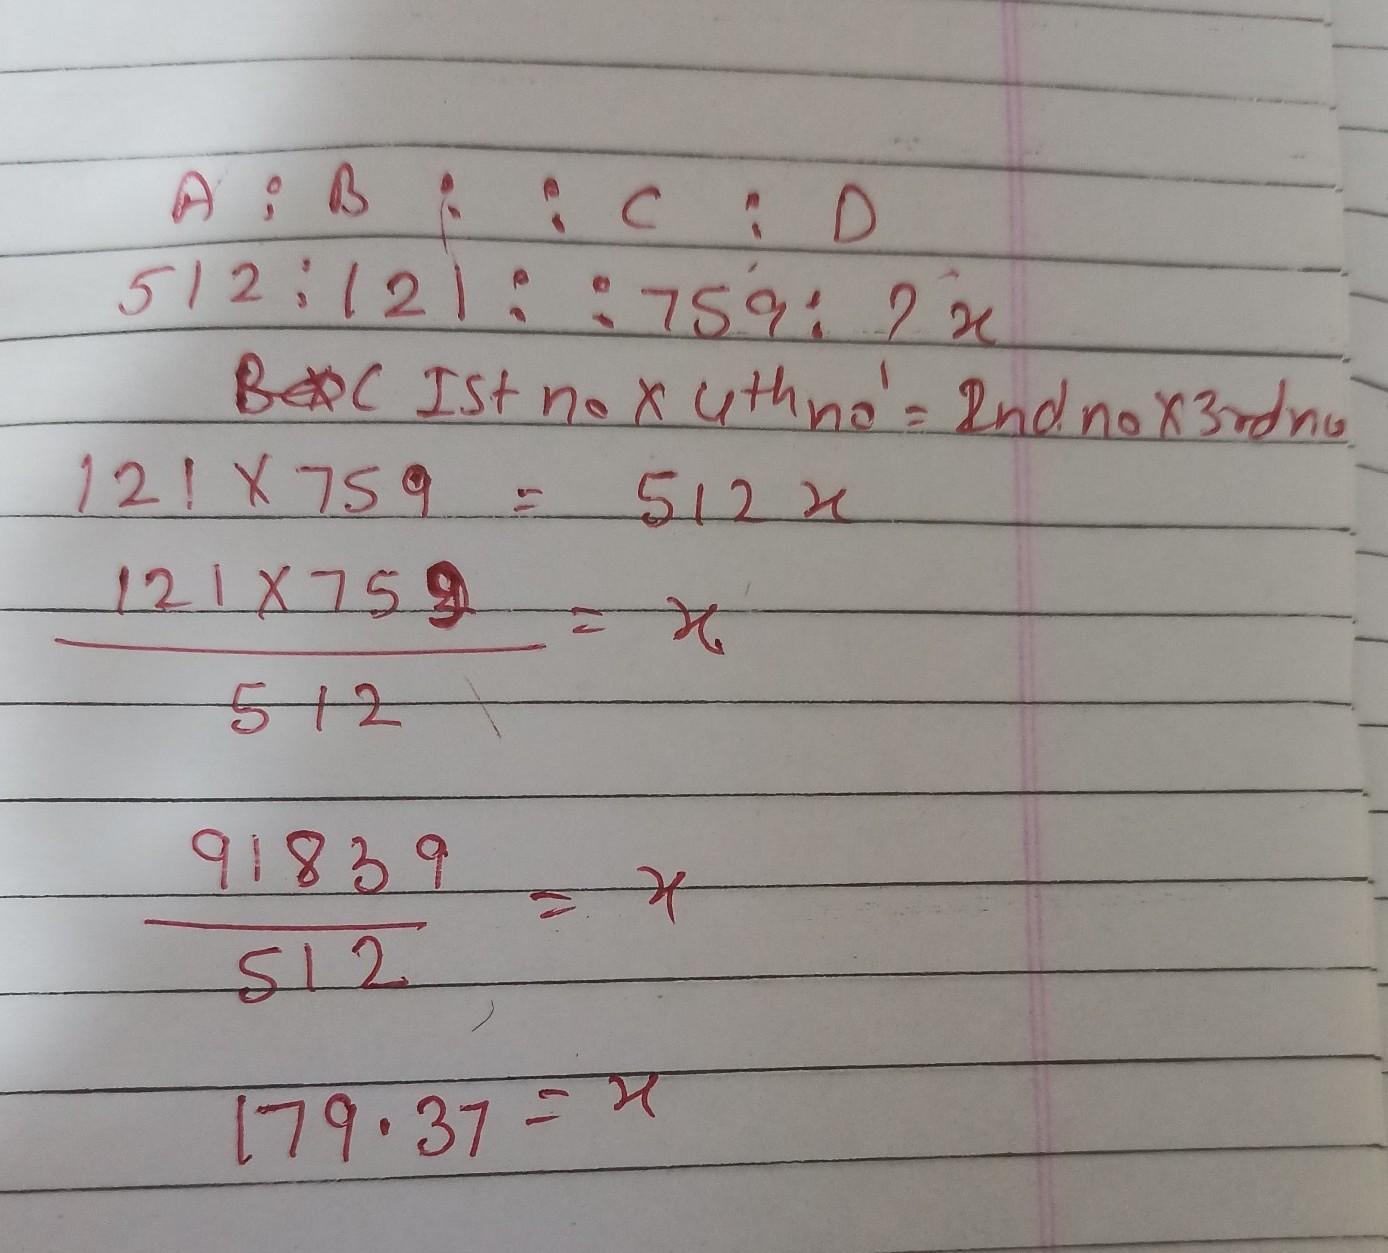 A : B : : C : D
512 : 121 : : 759 : ? x
B C Ist no x 4th no = 2nd no x 3rd no
121 x 759 = 512 x
121 x 759 = x
512
91839 = x
512
179.37 = x